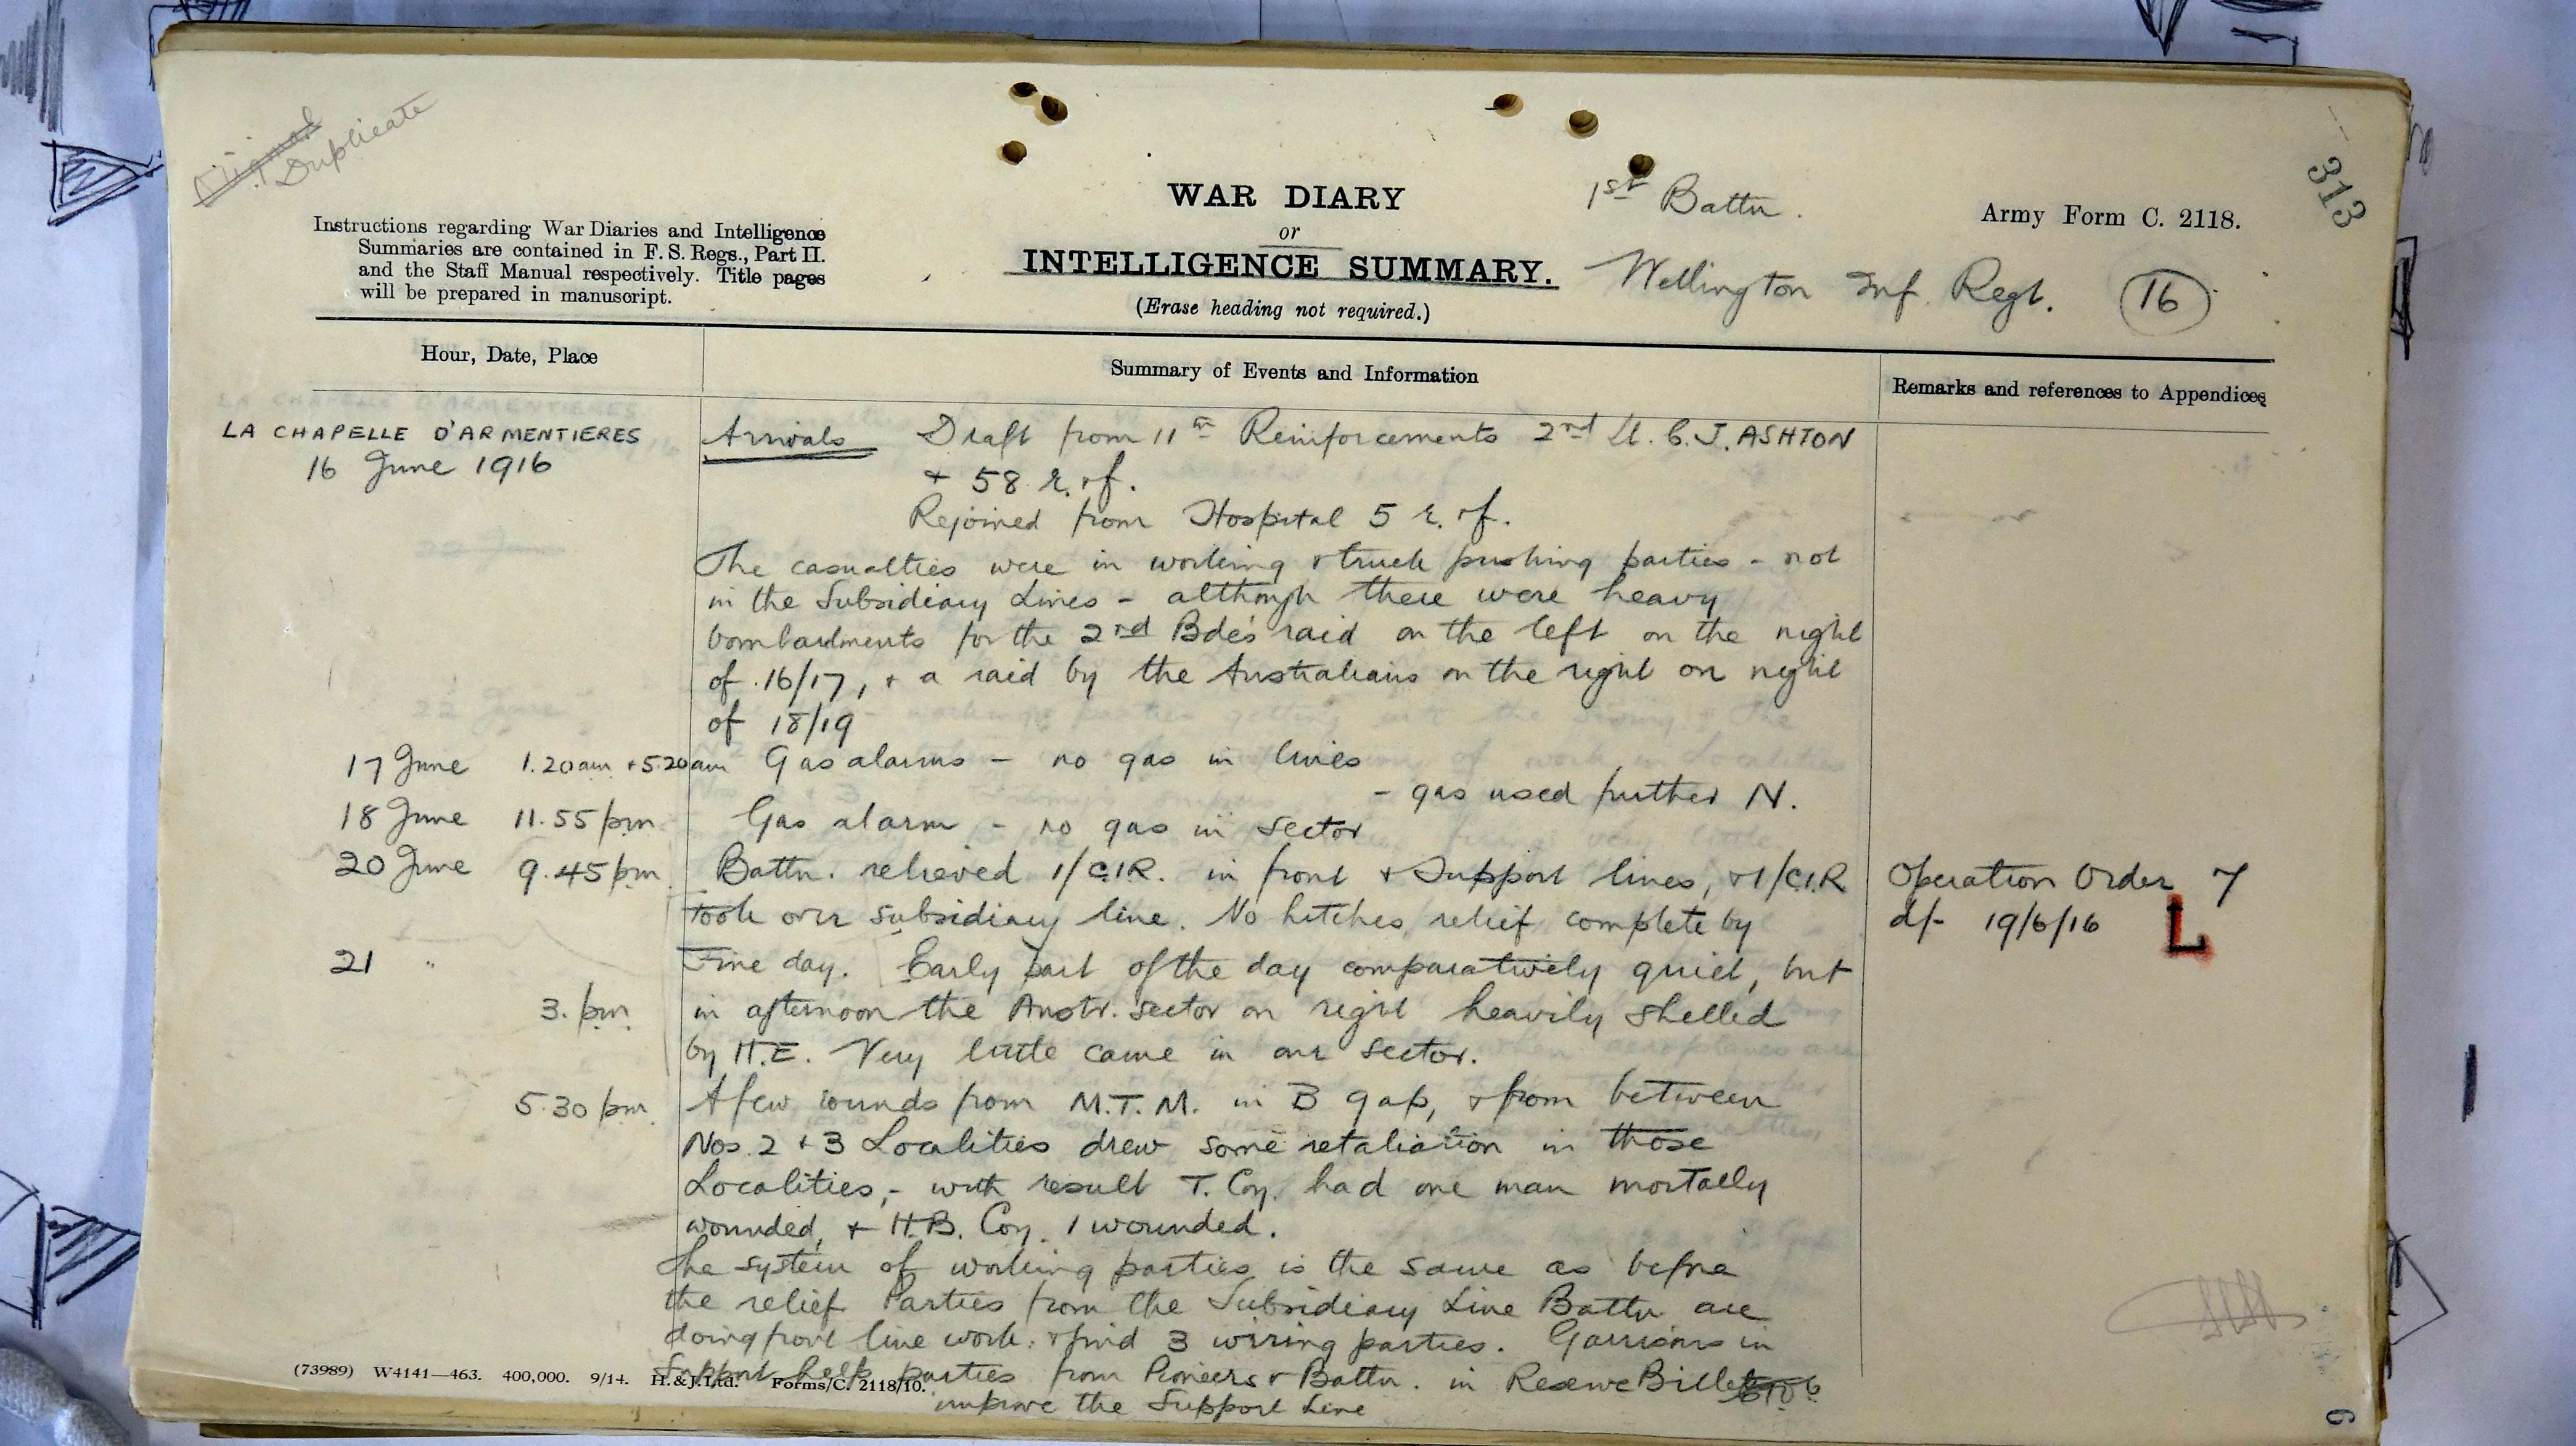 Original
Duplicate
313
Instructions regarding War Diaries and Intelligence
Summaries are contained in F. S. Regs., Part II.
and the Staff Manual respectively. Title pages
will be prepared in manuscript.
WAR DIARY
or
INTELLIGENCE SUMMARY.
(Erase heading not required.)
1st Battn.
Wellington Inf. Regt.
16
Army Form C. 2118.
Hour, Date, Place
Summary of Events and Information
Remarks and references to Appendices
LA CHAPELLE D'ARMENTIERES
16 June 1916
Arrivals Draft from 11th Reinforcements 2nd Lt. C. J. ASHTON
+ 58 r. & f.
Rejoined from Hospital 5 r. & f.
The casualties were in working & truck pushing parties - not
in the Subsidiary Lines - although there were heavy
bombardments for the 2nd Bde's raid on the left on the night
of 16/17, & a raid by the Australians on the right on night
of 18/19
17 June 1.20am + 5.20am Gas alarms - no gas in lines
- gas used further N.
18 June 11.55 pm Gas alarm - no gas in sector
20 June 9.45 pm. Battn. relieved 1/C.I.R. in front & Support lines, & 1/C.I.R
took over subsidiary line. No hitches, relief complete by
Operation Order 7
d/- 19/6/16 L
21 " Fine day. Early part of the day comparatively quiet, but
3. pm. in afternoon the Austr. sector on right heavily shelled
by H.E. Very little came in our sector.
5.30 pm. A few rounds from M.T.M. in B gap, & from between
Nos. 2 + 3 Localities drew some retaliation in those
Localities, - with result T. Coy. had one man mortally
wounded, + H.B. Coy. 1 wounded.
The system of working parties is the same as before
the relief. Parties from the Subsidiary Line Battn are
doing front line work: & find 3 wiring parties. Garrisons in
Support help parties from Pioneers & Battn. in Reserve Billets to
improve the Support Line
(73989) W4141—463. 400,000. 9/14. H.&J.Ltd. Forms/C. 2118/10.
6